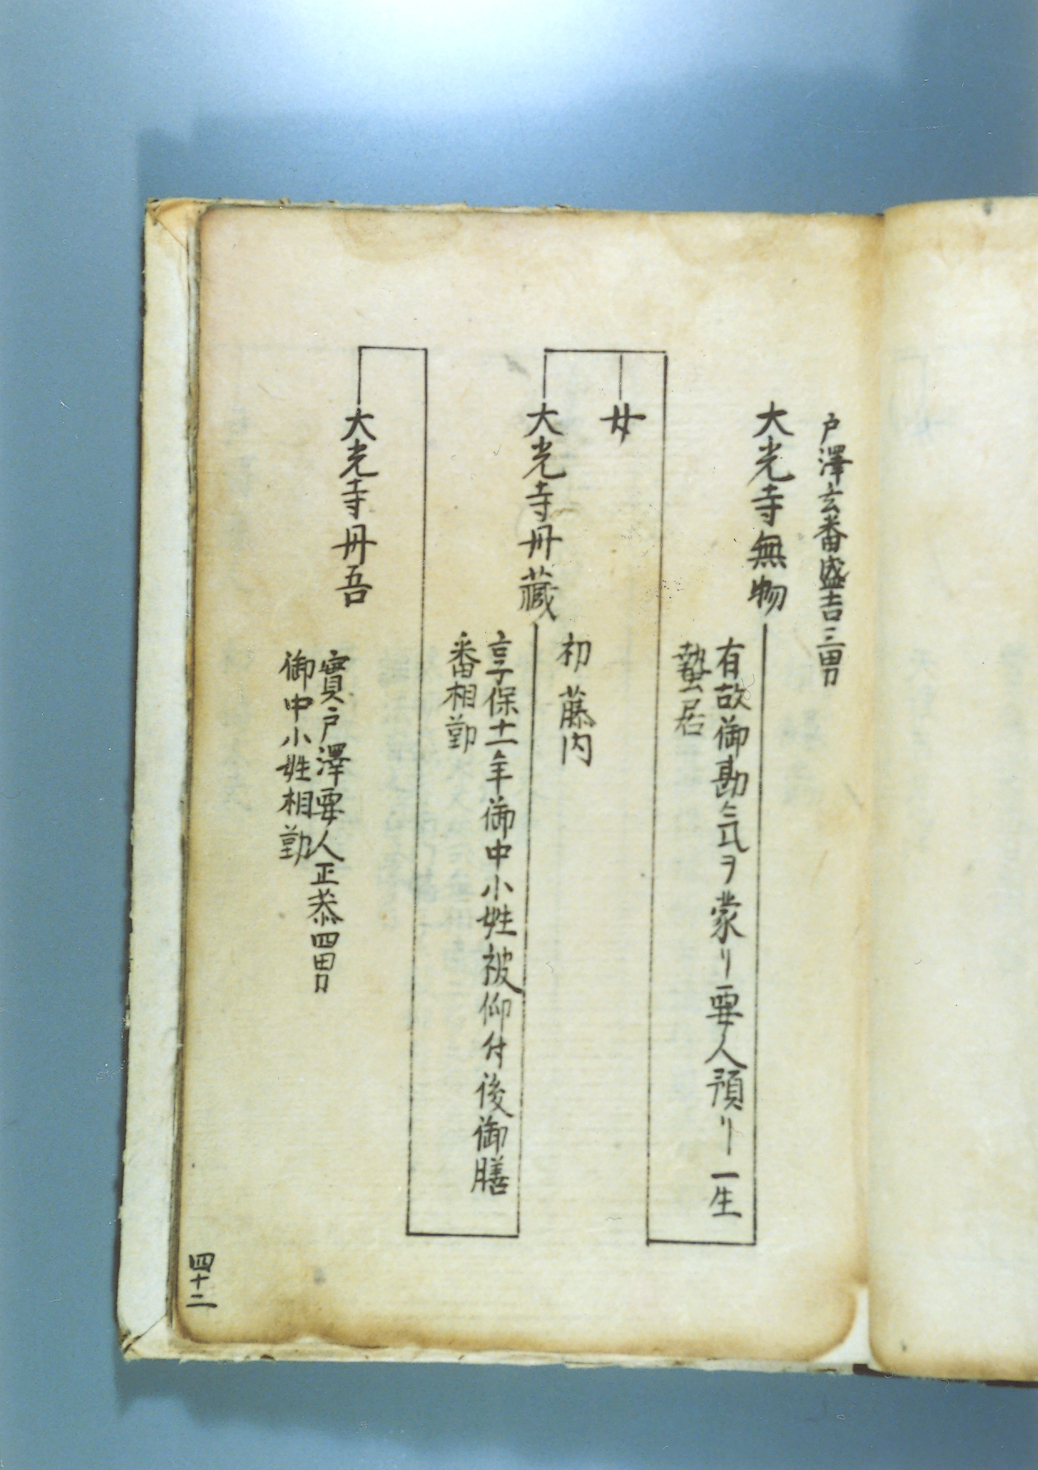 戸澤玄番盛吉三男
大光寺無物
有故御勘気ヲ蒙リ要人預リ一生
蟄居
女
大光寺丹藏
初藤内
享保十一年御中小姓被仰付後御膳
番相勤
大光寺丹吾
實戸澤要人正恭四男
御中小姓相勤
四十二